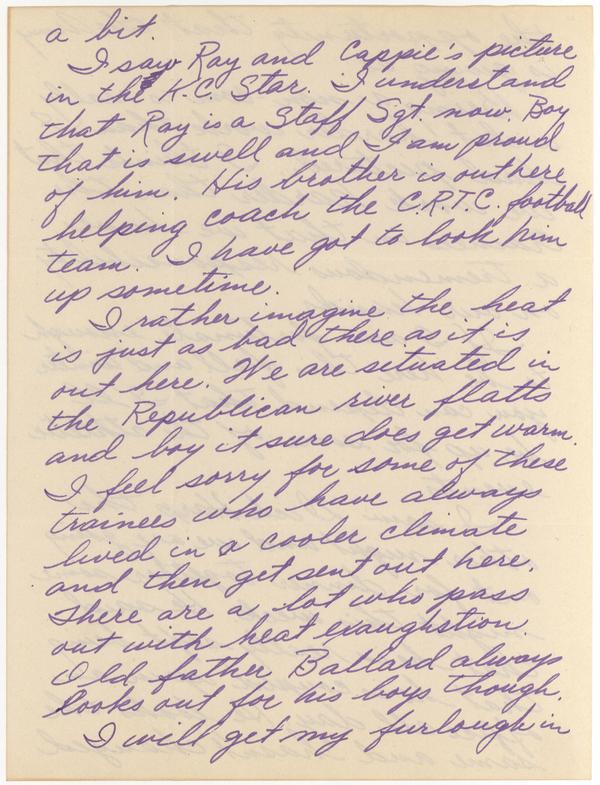 a bit.
I saw Ray and Cappie's picture
in the K.C. Star. I understand
that Ray is a Staff Sgt. now. Boy
that is swell and I am proud
of him. His brother is out here
helping coach the C.R.T.C. football
team. I have got to look him
up sometime.
I rather imagine the heat
is just as bad there as it is
out here. We are situated in
the Republican river flatts
and boy it sure does get warm.
I feel sorry for some of these
trainees who have always
lived in a cooler climate
and then get sent out here.
There are a lot who pass
out with heat exaughstion.
Old father Ballard always
looks out for his boys though.
I will get my furlough in